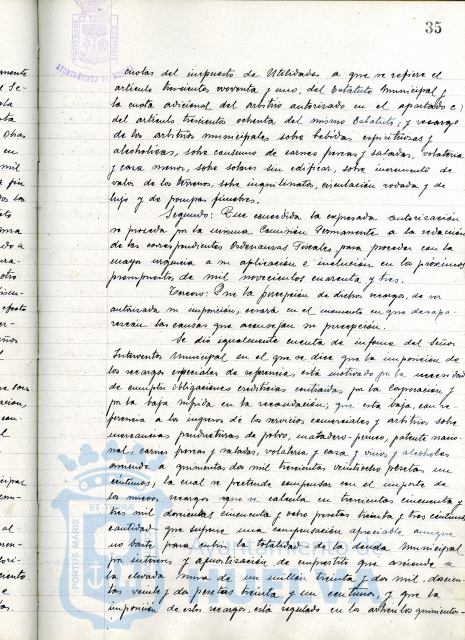 35
cuotas del impuesto de Utilidades a que se refiere el
artículo trescientos noventa y uno, del Estatuto Municipal y
la cuota adicional del arbitrio autorizado en el apartado c)
del artículo trescientos ochenta del mismo Estatuto; y recargo
de los arbitrios municipales sobre bebidas espirituosas y
alcoholicas, sobre consumo de carnes frescas y saladas, volateria
y caza menor, sobre solares sin edificar, sobre incremento de
valor de los terrenos, sobre inquilinatos, circulación rodada y de
lujo y de pompas fúnebres.
Segundo: Que concedida la expresada autorización
se proceda por la misma Comisión Permanente a la redacción
de las correspondientes Ordenanzas fiscales, para proceder con la
mayor urgencia a su aplicación e inclusión en los próximos
presupuestos de mil novecientos cuarenta y tres.
Tercero: Que la percepción de dichos recargos, de ser
autorizada su imposición, cesará en el momento en que desapa-
rezcan las causas que aconsejan su percepción.
Se dió igualmente cuenta de informe del Señor
Interventor Municipal en el que se dice que la imposición de
los recargos especiales de referencia, está motivado por la necesidad
de cumplir obligaciones crediticias contraidas por la Corporación y
por la baja sufrida en la recaudación; que esta baja, con re-
ferencia a los ingresos de los servicios comerciales y arbitrios sobre
mercancias productivas de polvo, matadero, pesas, patente nacio-
nal, carnes frescas y saladas, volateria y caza y vinos y alcoholes
asciende a quinientas dos mil trescientas veintiocho pesetas un
céntimo, la cual se pretende compensar con el importe de
los nuevos recargos que se calcula en trescientas cincuenta y
tres mil doscientas cincuenta y ocho pesetas treinta y tres céntimos,
cantidad que supone una compensación apreciable aunque
no baste para cubrir la totalidad de la deuda Municipal
por intereses y amortización de emprestito que asciende a
la elevada suma de un millón treinta y dos mil, doscien-
tas veinte y dos pesetas treinta y un centimos, y que la
imposición de estos recargos, está regulado en los artículos quinientos-
PORTUS MARIS